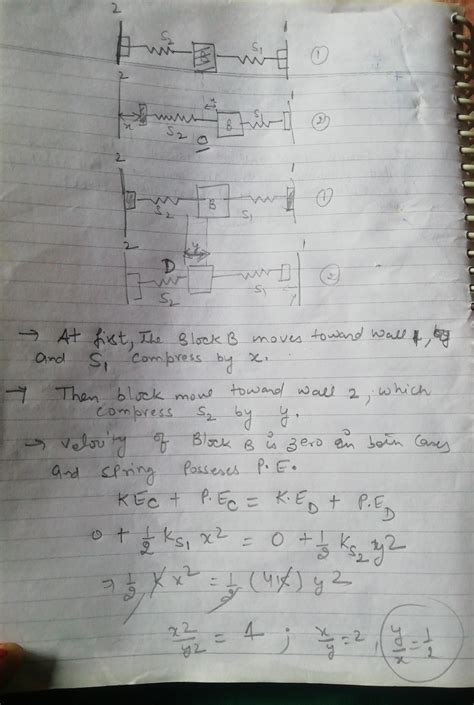 2 1
S2 B S1 ①
2 1
x x
S2 B S1 ②
2 1
S2 B S1 ①
2 1
D y
S2 S1 ②
→ At first, The Block B moves toward wall 1,
and S1 compress by x.
→ Then block move toward wall 2, which
compress S2 by y.
→ velocity of Block B is zero in both Cases
and spring Posseses P.E.
K.EC + P.EC = K.ED + P.ED
0 + 1/2 KS1 x2 = 0 + 1/2 KS2 y2
⇒ 1/2 K x2 = 1/2 (4K) y2
x2/y2 = 4 ; x/y = 2, y/x = 1/2